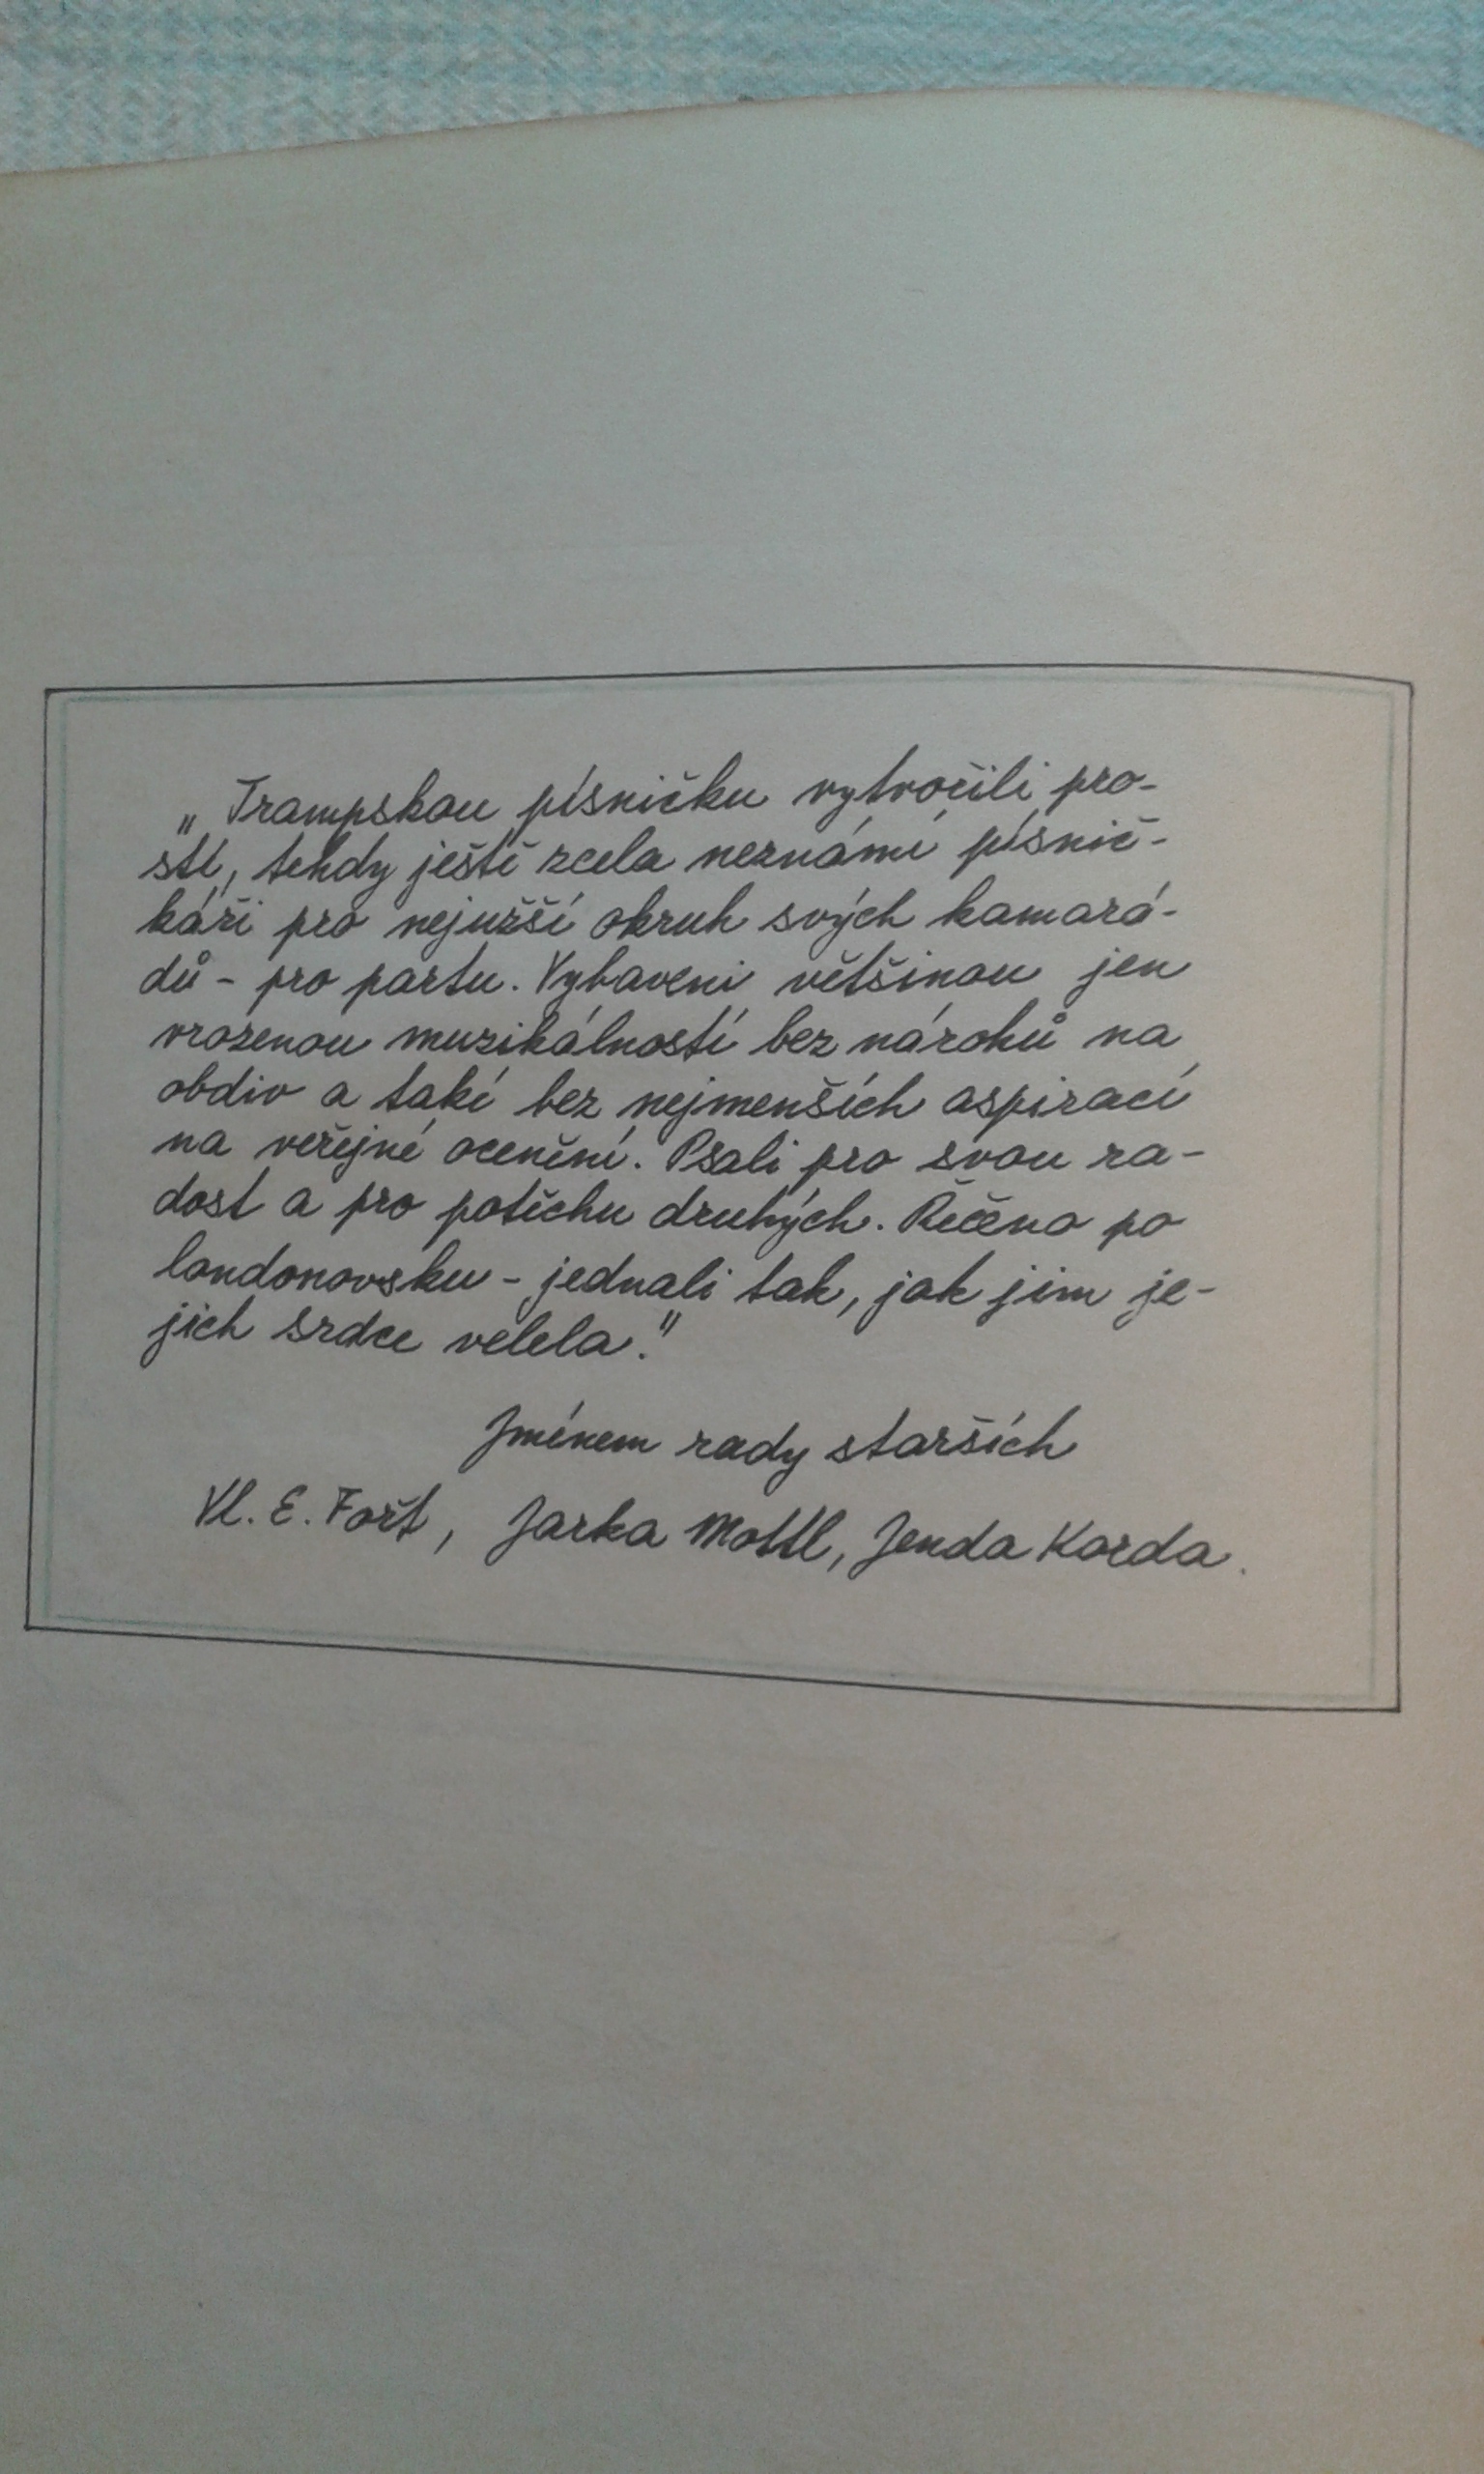 „Trampskou písničku vytvořili pro-
stí, tehdy ještě zcela neznámí písnič-
káři pro nejužší okruh svých kamará-
dů - pro partu. Vybaveni většinou jen
vrozenou muzikálností bez nároků na
obdiv a také bez nejmenších aspirací
na veřejné ocenění. Psali pro svou ra-
dost a pro potěchu druhých. Řečeno po
londonovsku - jednali tak, jak jim je-
jich srdce velela."
Jménem rady starších
Vl. E. Fořt, Jarka Mottl, Jenda Korda.